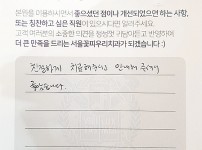 본원을 이용하시면서 좋으셨던 점이나 개선되었으면 하는 사항,
또는 칭찬하고 싶은 직원이 있으시다면 알려주세요.
고객 여러분의 소중한 의견을 정성껏 귀담아듣고 반영하여
더 큰 만족을 드리는 서울꽃피우리치과가 되겠습니다 :)
친절하게 치료해주시고 안내해 주셔서
좋았습니다